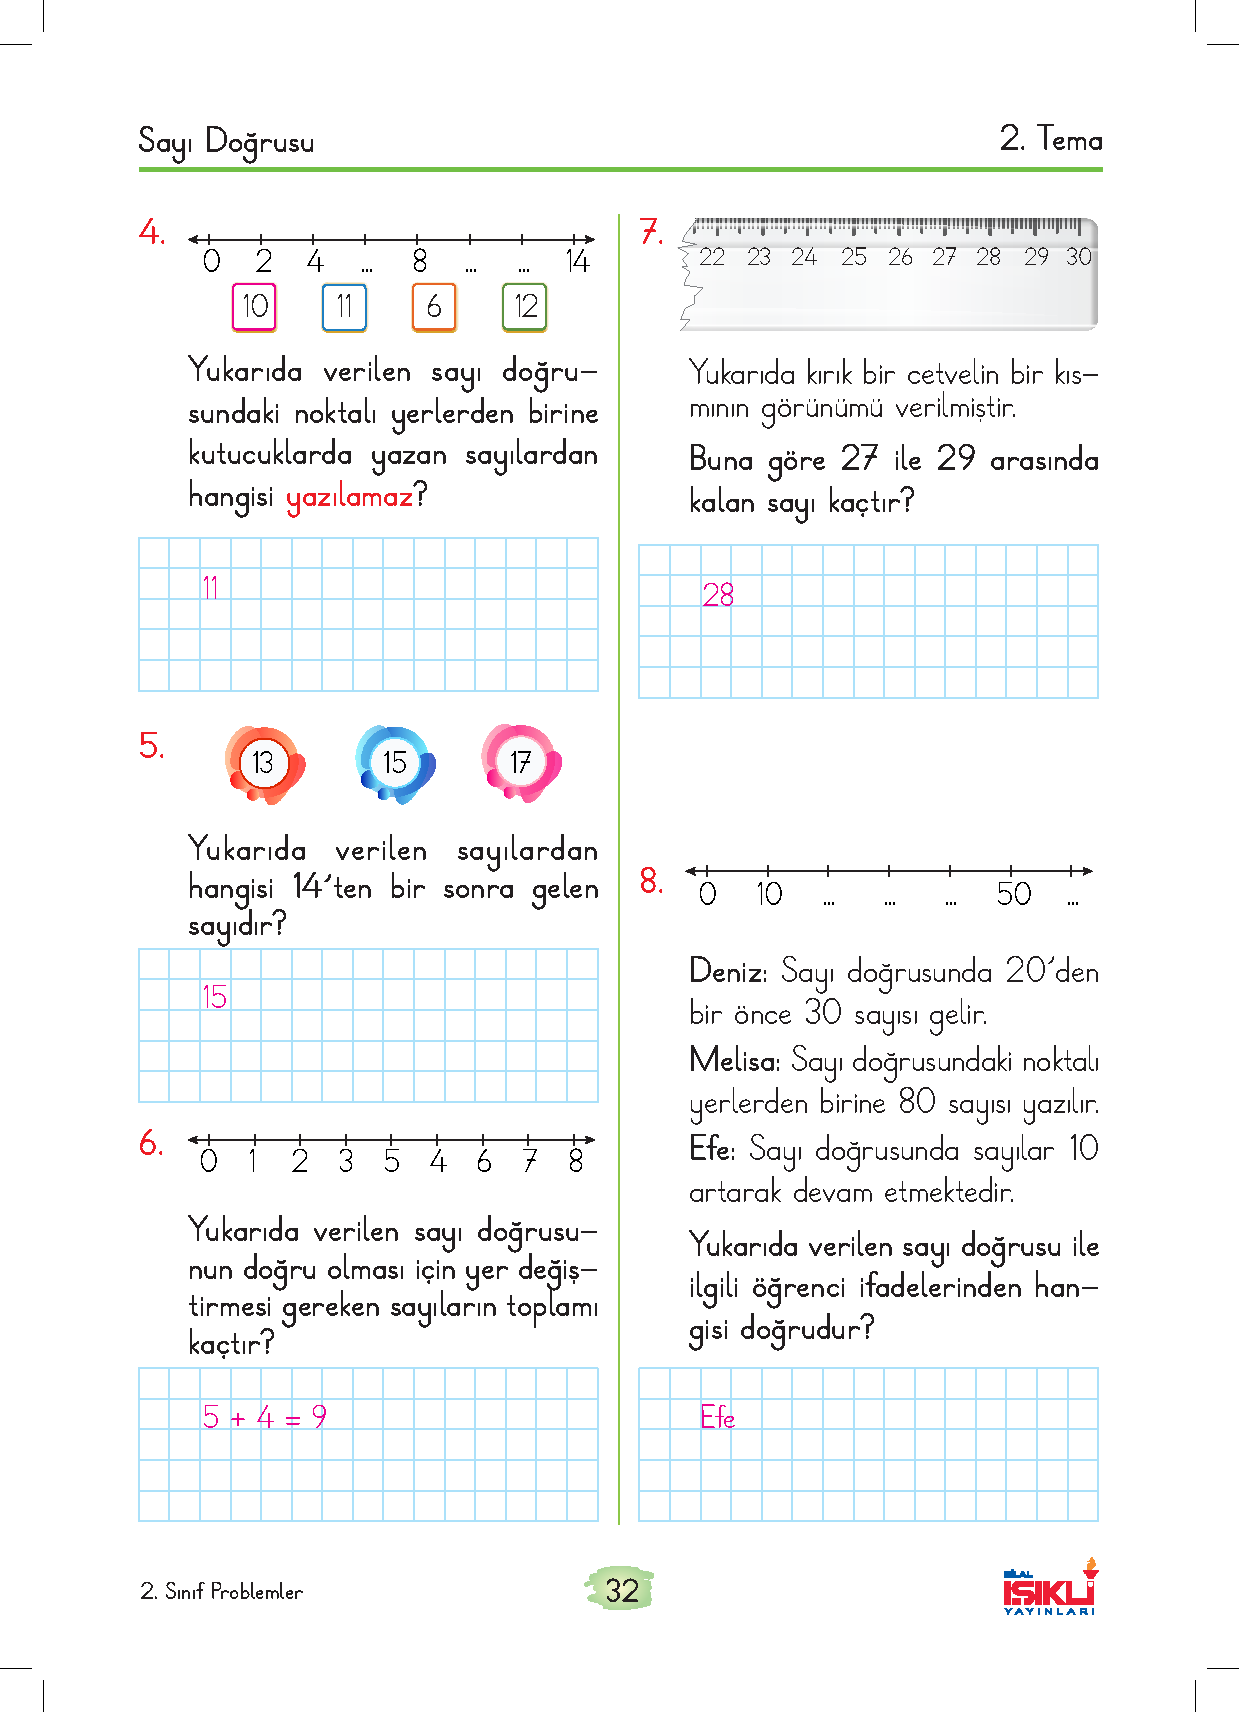 Sayı Doğrusu
2. Tema
4.
0 2 4 ... 8 ... ... 14
10 11 6 12
Yukarıda verilen sayı doğru-
sundaki noktalı yerlerden birine
kutucuklarda yazan sayılardan
hangisi yazılamaz?
11
5.
13 15 17
Yukarıda verilen sayılardan
hangisi 14'ten bir sonra gelen
sayıdır?
15
6.
0 1 2 3 5 4 6 7 8
Yukarıda verilen sayı doğrusu-
nun doğru olması için yer değiş-
tirmesi gereken sayıların toplamı
kaçtır?
5 + 4 = 9
7.
22 23 24 25 26 27 28 29 30
Yukarıda kırık bir cetvelin bir kıs-
mının görünümü verilmiştir.
Buna göre 27 ile 29 arasında
kalan sayı kaçtır?
28
8.
0 10 ... ... ... 50 ...
Deniz: Sayı doğrusunda 20'den
bir önce 30 sayısı gelir.
Melisa: Sayı doğrusundaki noktalı
yerlerden birine 80 sayısı yazılır.
Efe: Sayı doğrusunda sayılar 10
artarak devam etmektedir.
Yukarıda verilen sayı doğrusu ile
ilgili öğrenci ifadelerinden han-
gisi doğrudur?
Efe
2. Sınıf Problemler
32
BİLAL
IŞIKLI
YAYINLARI